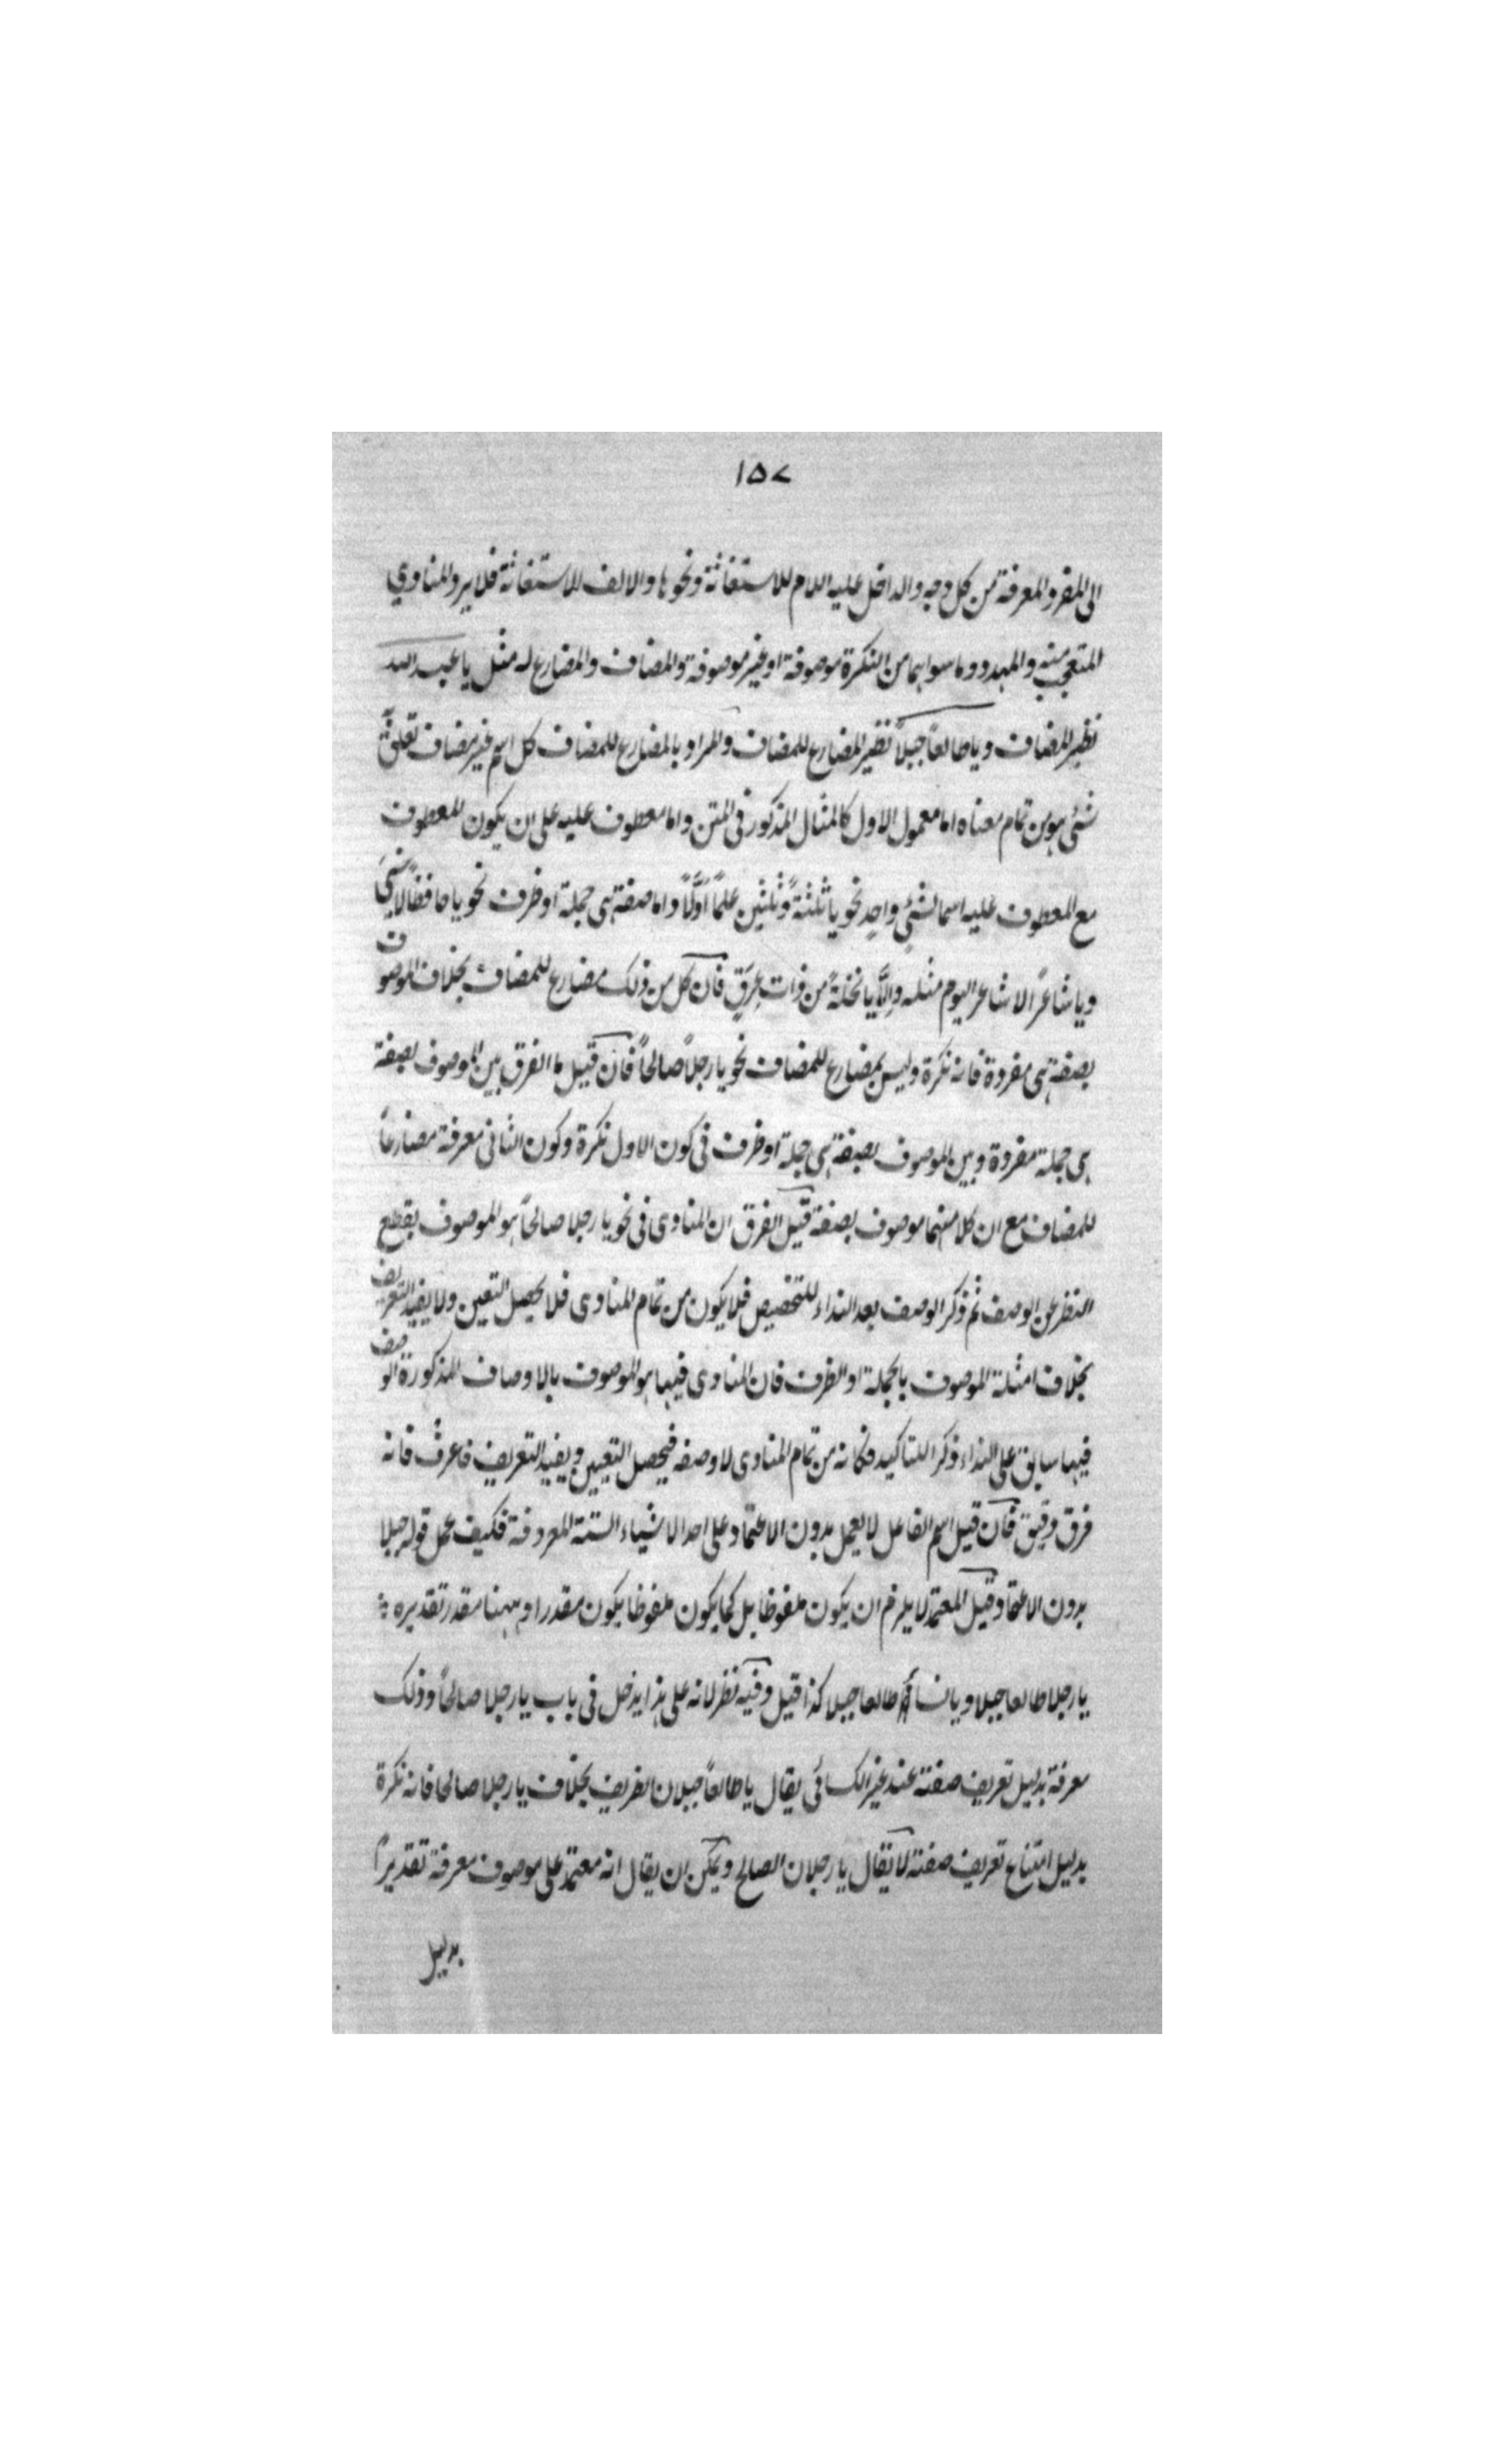 ١٥٧
الى المفرد المعرفة من كل وجه والداخل عليه اللام للاستغاثة ونحوها والالف للاستغاثة فلا يرد المنادى
المتعجب منه والمهدد وما سواهما من النكرة موصوفة او غير موصوفة والمضاف والمضارع له مثل يا عبد الله
نظير المضاف ويا طالعاً جبلاً نظير المضارع للمضاف والمراد بالمضارع للمضاف كل اسم غير مضاف تعلق به
شئ هو من تمام معناه اما معمول الاول كالمثال المذكور فى المتن واما معطوف عليه على ان يكون المعطوف
مع المعطوف عليه اسما لشئٍ واحدٍ نحو يا ثلثةً وثلثين علماً اولًا واما صفة هى جملة او ظرف نحو يا حافظًا لا ينسى
ويا شاعرًا لا شاعر اليوم مثله وإلّا يا نخلةً من ذات عرقٍ فان كل من ذلك مضارع للمضاف بخلاف الموصوف
بصفة هى مفردة فانه نكرة وليس بمضارع للمضاف نحو يا رجلاً صالحاً فان قيل ما الفرق بين الموصوف بصفة
هى جملة مفردة وبين الموصوف بصفة هى جملة او ظرف فى كون الاول نكرة وكون الثانى معرفة مضارعاً
للمضاف مع ان كلا منهما موصوف بصفة قيل الفرق ان المنادى فى نحو يا رجلا صالحاً هو الموصوف بقطع
النظر عن الوصف ثم ذكر الوصف بعد النداء للتخصيص فلا يكون من تمام المنادى فلا يحصل التعين ولا يفيد التعريف
بخلاف امثلة الموصوف بالجملة او الظرف فان المنادى فيها هو الموصوف بالاوصاف المذكورة الوصف
فيها سابق على النداء ذكر للتاكيد فكانه من تمام المنادى لا وصفه فيحصل التعيين ويفيد التعريف فاعرف فانه
فرق دقيق فان قيل اسم الفاعل لا يعمل بدون الاعتماد على احد الاشياء الستة المعروفة فكيف عمل قوله جبلا
بدون الاعتماد وقيل المعتمد لا يلزم ان يكون ملفوظا بل كما يكون ملفوظا يكون مقدرا وههنا مقدر تقديره
يا رجلا طالعا جبلا ويا نسا طالعا جبلا كذا قيل وفيه نظر لانه على هذا يدخل فى باب يا رجلا صالحاً وذلك
معرفة بدليل تعريف صفته عند غير الكسائى يقال يا طالعاً جبلان الظريف بخلاف يا رجلا صالحا فانه نكرة
بدليل امتناع تعريف صفته لا يقال يا رجلان الصالح ويمكن ان يقال انه معتمد على موصوف معرفة تقديراً
بدليل